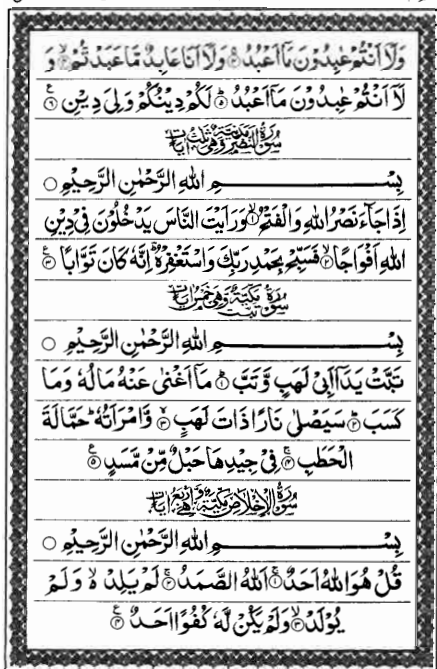 وَلَآ اَنْتُمْ عٰبِدُوْنَ مَآ اَعْبُدُ ۝۳ وَلَآ اَنَا عَابِدٌ مَّا عَبَدْتُّمْ ۝۴ وَ
لَآ اَنْتُمْ عٰبِدُوْنَ مَآ اَعْبُدُ ۝۵ لَكُمْ دِيْنُكُمْ وَلِيَ دِيْنِ ۝۶
سُوْرَةُ النَّصْرِ مَدَنِيَّةٌ وَّهِيَ ثَلٰثُ اٰيَاتٍ
بِسْمِ اللهِ الرَّحْمٰنِ الرَّحِيْمِ ○
اِذَا جَآءَ نَصْرُ اللهِ وَالْفَتْحُ ۝۱ وَرَاَيْتَ النَّاسَ يَدْخُلُوْنَ فِيْ دِيْنِ
اللهِ اَفْوَاجًا ۝۲ فَسَبِّحْ بِحَمْدِ رَبِّكَ وَاسْتَغْفِرْهُ ؕ اِنَّهٗ كَانَ تَوَّابًا ۝۳
سُوْرَةُ تَبَّتْ مَكِّيَّةٌ وَّهِيَ خَمْسُ اٰيَاتٍ
بِسْمِ اللهِ الرَّحْمٰنِ الرَّحِيْمِ ○
تَبَّتْ يَدَآ اَبِيْ لَهَبٍ وَّتَبَّ ۝۱ مَآ اَغْنٰى عَنْهُ مَالُهٗ وَمَا
كَسَبَ ۝۲ سَيَصْلٰى نَارًا ذَاتَ لَهَبٍ ۝۳ وَّامْرَاَتُهٗ ؕ حَمَّالَةَ
الْحَطَبِ ۝۴ فِيْ جِيْدِهَا حَبْلٌ مِّنْ مَّسَدٍ ۝۵
سُوْرَةُ الْاِخْلَاصِ مَكِّيَّةٌ وَّهِيَ اَرْبَعُ اٰيَاتٍ
بِسْمِ اللهِ الرَّحْمٰنِ الرَّحِيْمِ ○
قُلْ هُوَ اللهُ اَحَدٌ ۝۱ اَللهُ الصَّمَدُ ۝۲ لَمْ يَلِدْ ۙ وَلَمْ
يُوْلَدْ ۝۳ وَلَمْ يَكُنْ لَّهٗ كُفُوًا اَحَدٌ ۝۴